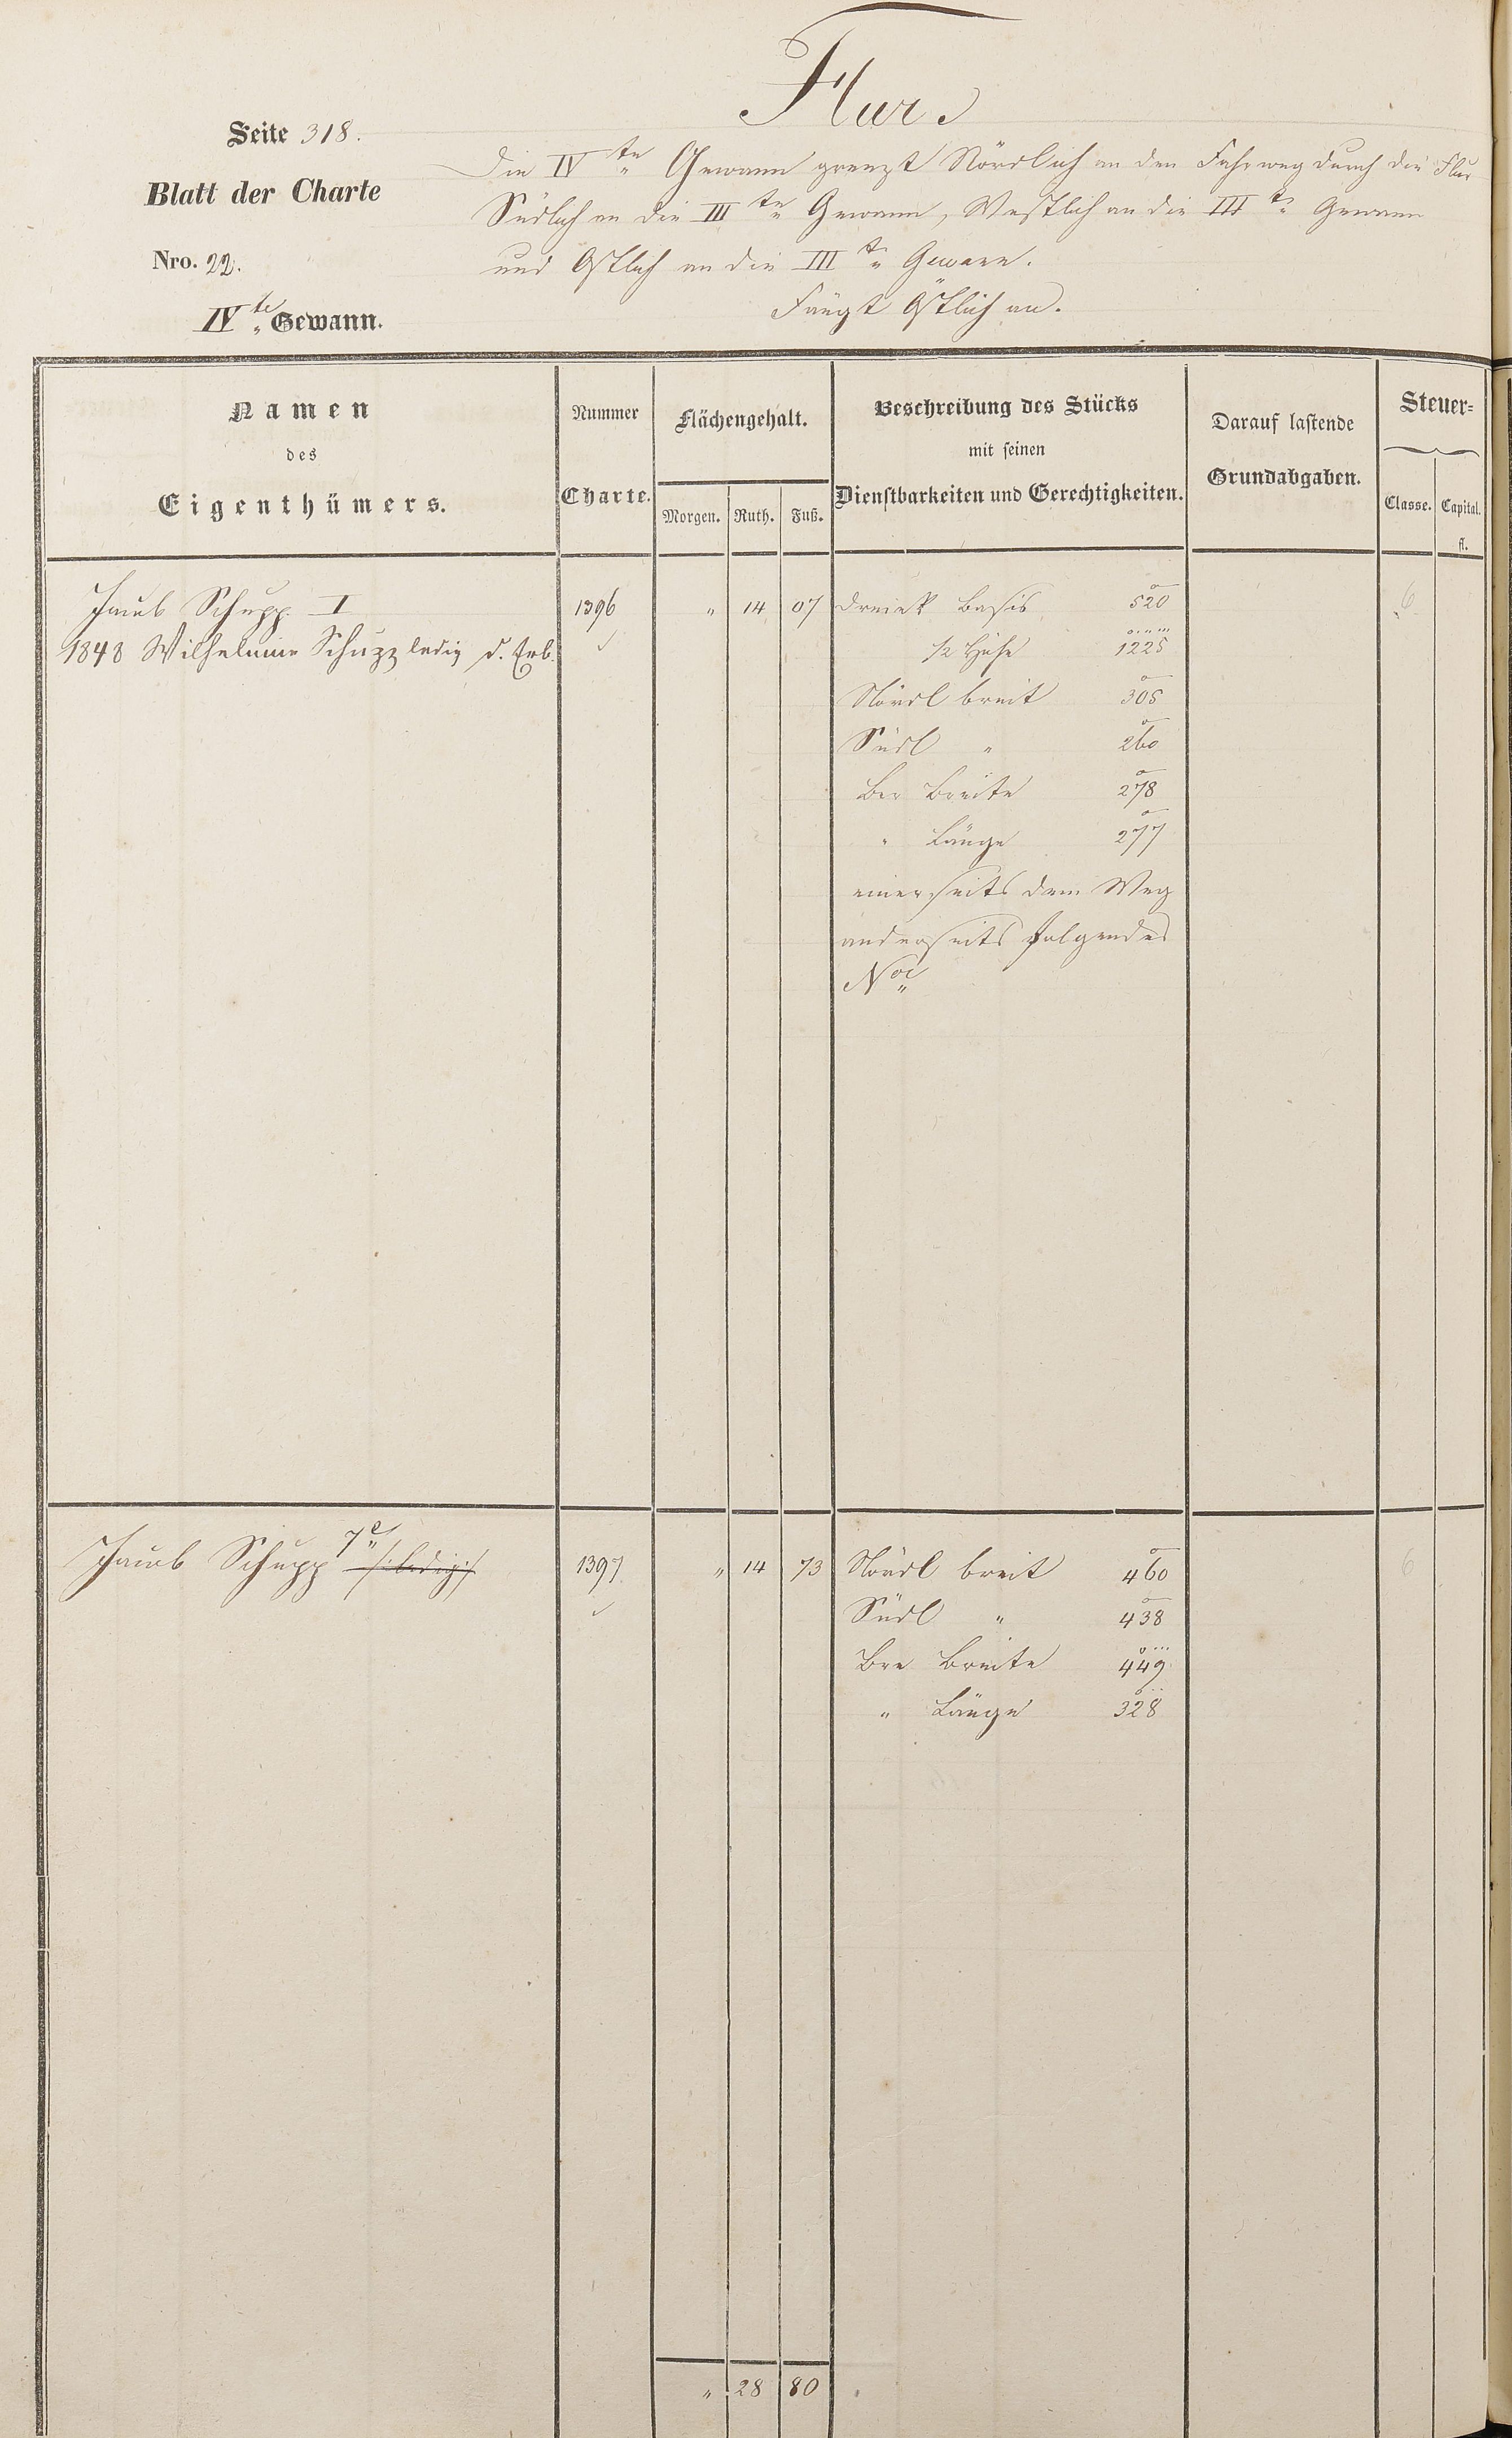 Flur.
Seite 318.
Die IV te Gewann grenzt Nördlich an den Fahrweg durch die Flur
Blatt der Charte
Südlich an die III te Gewann, Westlich an die III te Gewann
Nro. 22.
und Östlich an die III te Gewann.
Fängt Östlich an.
IV te Gewann.
Namen
des
Eigenthümers.
Nummer
Charte.
Flächengehalt.
Morgen. Ruth. Fuß.
Beschreibung des Stücks
mit seinen
Dienstbarkeiten und Gerechtigkeiten.
Darauf lastende
Grundabgaben.
Steuer=
Classe. Capital.
fl.
Jacob Schupp I 1396 " 14 07 Dreieck Basis 520 6
1848 Wilhelmine Schupp ledig d. Erb. 1/2 Höhe 1225
Nördl breit 305
Südl " 260
Ber Breite 278
" Länge 277
einerseits dem Weg
anderseits folgendes
Nro
Jacob Schupp 7r /:ledig:/ 1397 " 14 73 Nördl breit 460 6
Südl " 438
Ber Breite 449
" Länge 328
" 28 80